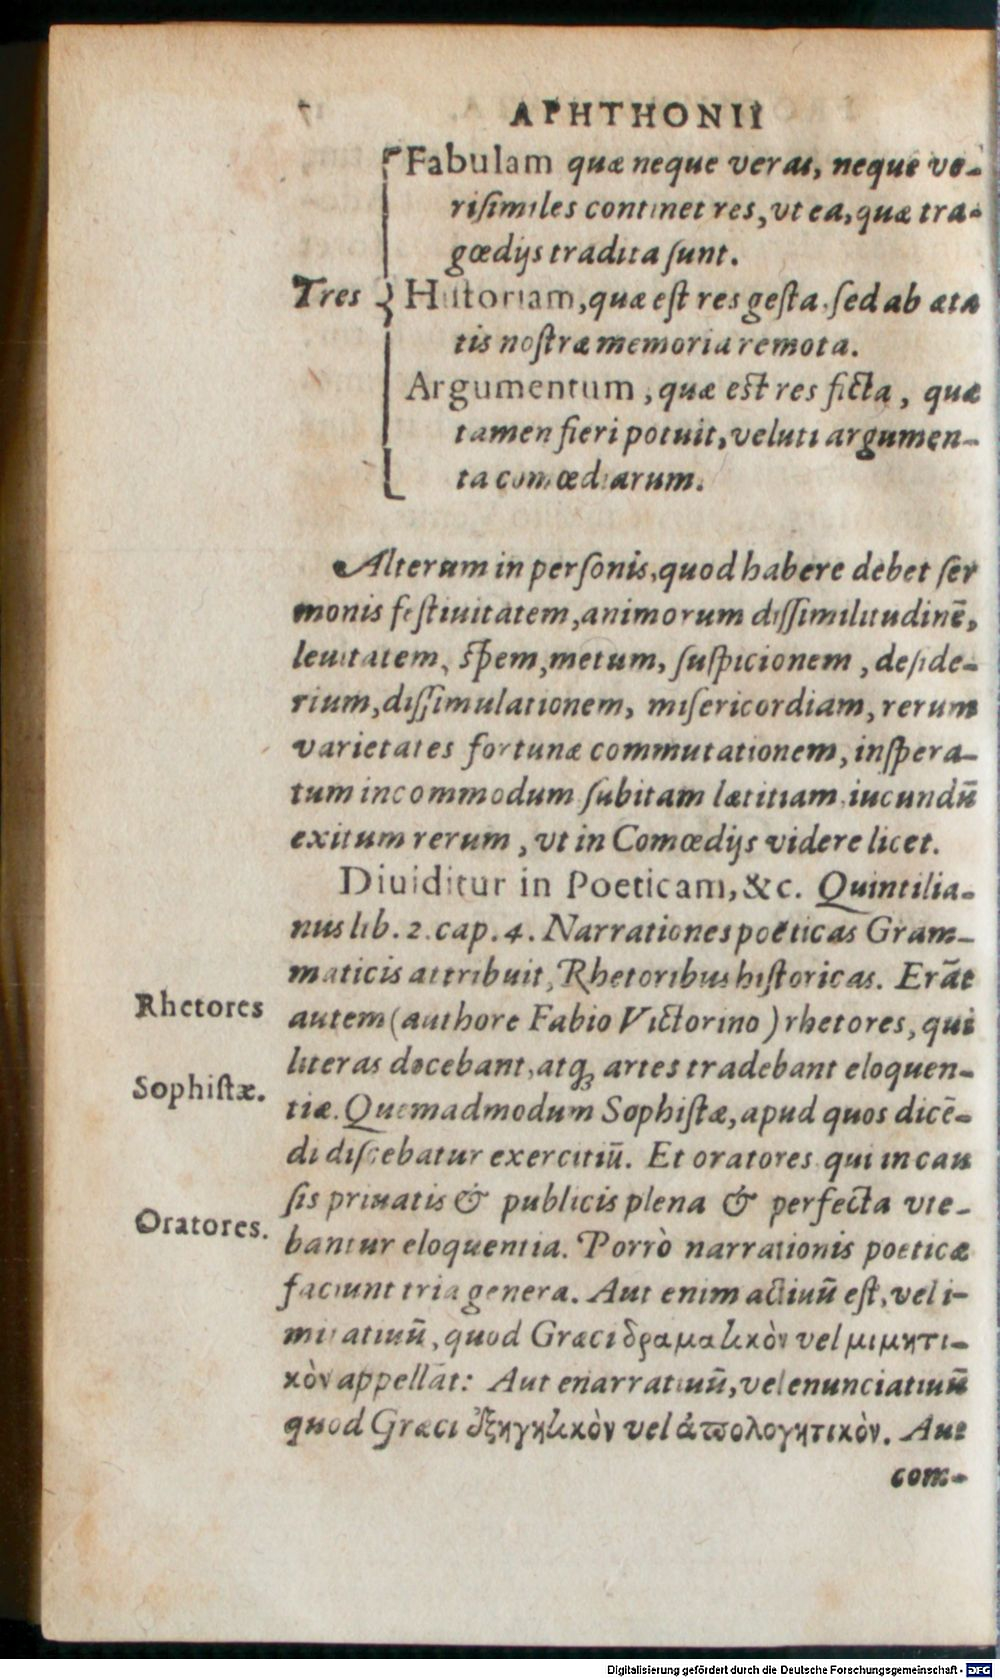 APHTHONII
Fabulam quæ neque veras, neque ve-
risimiles continet res, vt ea, quæ tra-
gœdijs tradita sunt.
Tres
Historiam, quæ est res gesta, sed ab æta
tis nostræ memoria remota.
Argumentum, quæ est res ficta, quæ
tamen fieri potuit, veluti argumen-
ta comœdiarum.
Alterum in personis, quod habere debet ser
monis festiuitatem, animorum dissimilitudinē,
leuitatem, spem, metum, suspicionem, deside-
rium, dissimulationem, misericordiam, rerum
varietates fortunæ commutationem, inspera-
tum incommodum subitam lætitiam, iucundū
exitum rerum, vt in Comœdijs videre licet.
Diuiditur in Poeticam, &c. Quintilia-
nus lib. 2. cap. 4. Narrationes poëticas Gram-
maticis attribuit, Rhetoribus historicas. Erāt
Rhetores
autem (authore Fabio Victorino) rhetores, qui
literas docebant, atq; artes tradebant eloquen-
Sophistæ.
tiæ. Quemadmodum Sophistæ, apud quos dicē-
di discebatur exercitiū. Et oratores qui in cau
sis priuatis & publicis plena & perfecta vte-
Oratores.
bantur eloquentia. Porrò narrationis poeticæ
faciunt tria genera. Aut enim actiuū est, vel i-
mitatiuū, quod Græci δραματικὸν vel μιμητι-
κὸν appellāt: Aut enarratiuū, vel enunciatiuū
quod Græci ἐξηγητικὸν vel ἀπολογητικὸν. Aut
com-
Digitalisierung gefördert durch die Deutsche Forschungsgemeinschaft - DFG